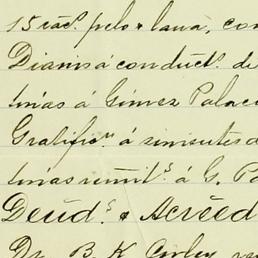 15 sac.s pelo & lana, con
Diarios á conduct.s de
linías á Gómez Palac
Gratific.n á sirvientes d
linías remit.s á G. Pa
Deud.s & Acreed
Dr. B. K. Corley